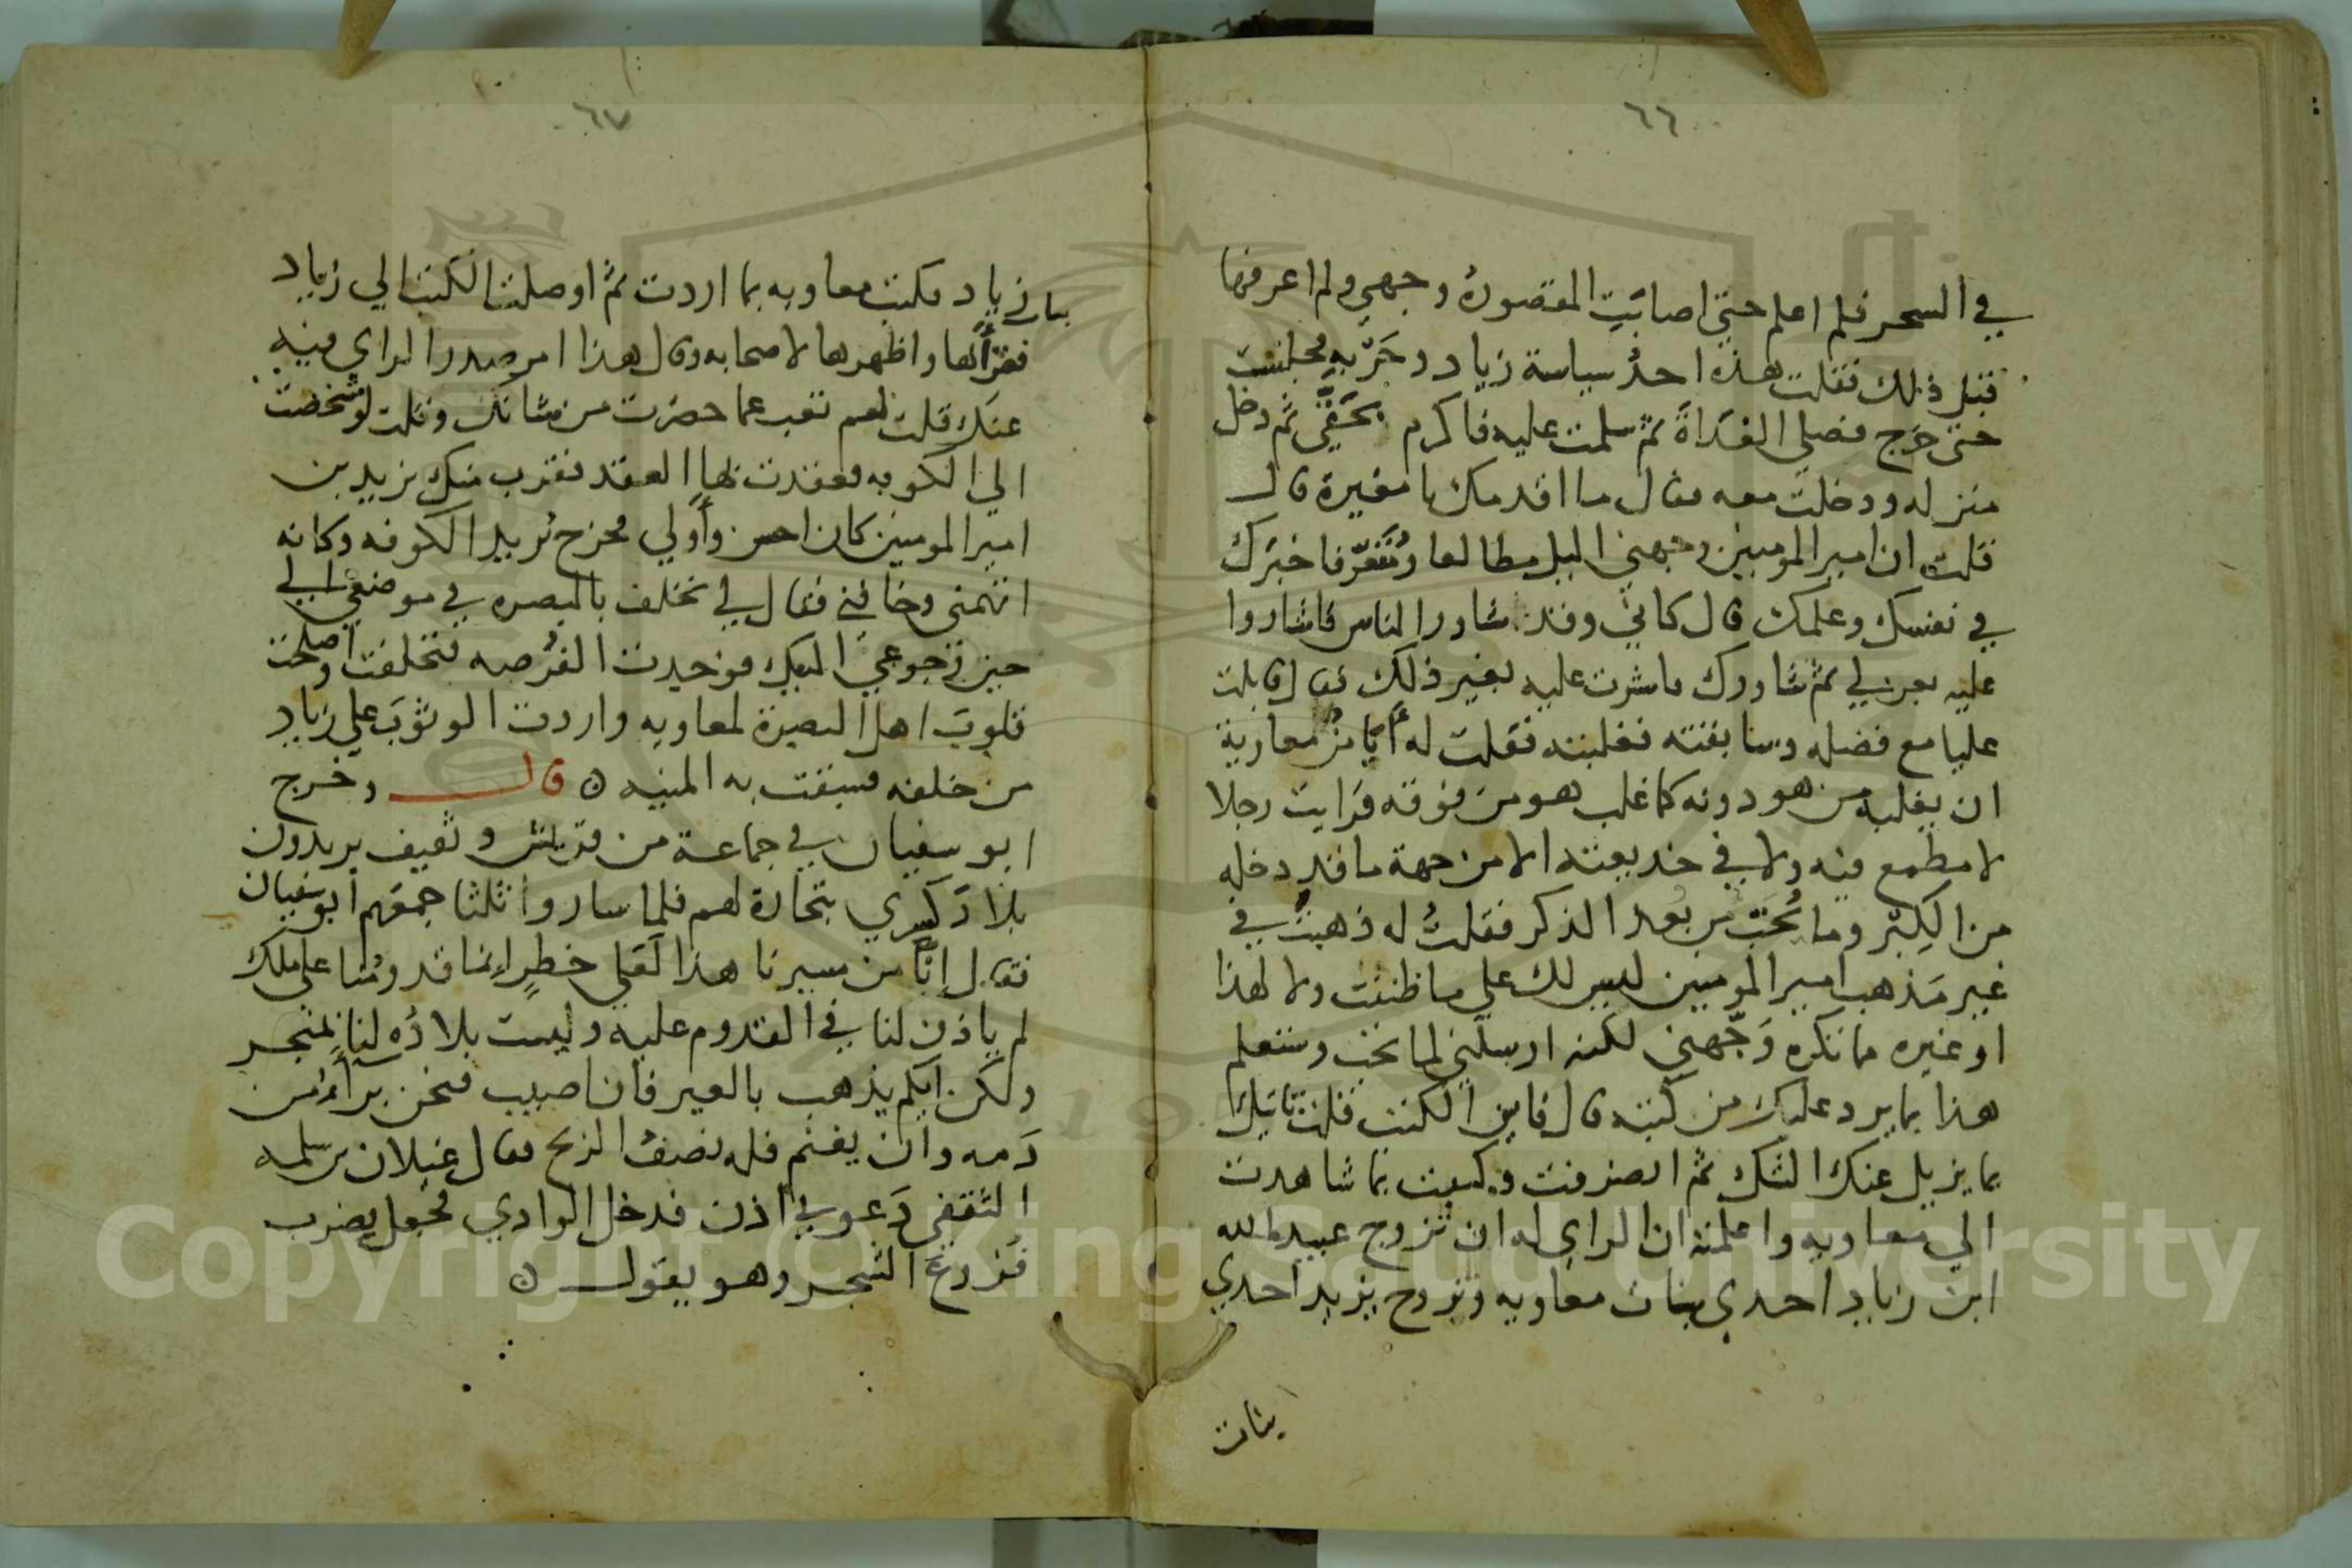 ٦٦
في السحر فلم اعلم حتي اصابت المقصورة وجهي ولم اعرفها
قبل ذلك فقلت هذه احد سياسة زياد وحربه فجلست
حتى خرج فصلي الغداة ثم سلمت عليه فاكرم ثم دخل
منزله ودخلت معه فقال ما اقدمك يا مغيرة قال
قلت ان امير المومنين وجهني اليك مطالعا ومتعرفا خبرك
في نفسك وعلمك قال كاني وقد شاور الناس فاشاروا
عليه ثم شاورك فاشرت عليه بغير ذلك فقال قابلت
عليا مع فضله وسابقته فغلبته فقلت له معاوية
ان يغلبه من هو دونه كما غلب هو من فوقه فرايت رجلا
لا مطمع فيه ولا في خديعته الا من جهة ما قد دخله
من الكبر وما يحب من بعد الذكر فقلت له ذهبت في
غير مذهب امير المومنين ليس لك علي ما ظننت ولا لهذا
او غيره مما تكره وجهني لكنه ارسلني لما تحب وستعلم
هذا بما يرد عليك من كتبه قال فاين الكتب قلت تاتيك
بما يزيل عنك الشك ثم انصرفت وكتبت بما شاهدت
الي معاويه واعلمته ان الراي له ان تزوج عبيد الله
ابن زياد احدي بنات معاويه وتزوج يزيد احدي
بنات
٦٧
زياد فكتب معاويه بما اردت ثم اوصلت الكتب الي زياد
فقراها واظهرها لاصحابه وقال هذا امر صدر الراي فيه
عنك قلت نعم عما حضرت من شانك وقلت لو شخصت
الي الكوفه فعقدت بها العقد فتقرب منك يزيد بن
امير المومنين كان احسن وأولي فخرج يريد الكوفه وكانه
اتهمني وخافني فقال لي تخلف بالبصره في موضعي الي
حين رجوعي اليك فوجدت الفرصه فتخلفت واصلحت
قلوب اهل البصرة لمعاويه واردت الوثوب علي زياد
من خلفه فسبقت به المنيه ه قال وخرج
ابو سفيان في جماعة من قريش وثقيف يريدون
بلاد كسري بتجارة لهم فلما ساروا ثلثا جمعهم ابو سفيان
فقال إنا من مسيرنا هذا لعلي خطر انما قدومنا علي ملك
لم ياذن لنا في القدوم عليه وليست بلاده لنا بمتجر
ولكن ايكم يذهب بالعير فان اصيب فنحن برآء من
دمه وان يغنم فله نصف الربح فقال غيلان بن سلمه
الثقفي دعوني اذن فدخل الوادي فجعل يضرب
فروع الشجر وهو يقول ه
Copyright © King Saud University